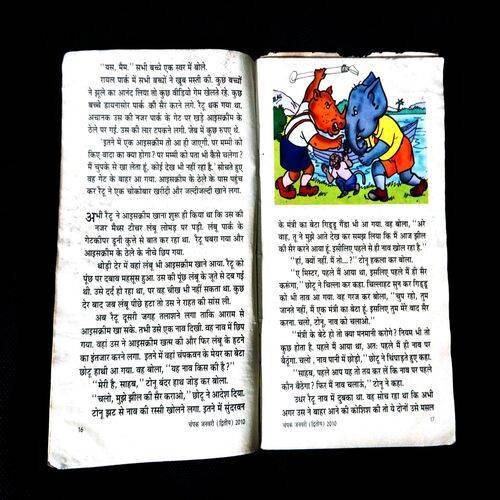 "यस, मैम," सभी बच्चे एक स्वर में बोले.
रायल पार्क में सभी बच्चों ने खूब मस्ती की. कुछ बच्चों
ने झूले का आनंद लिया तो कुछ वीडियो गेम खेलते रहे. कुछ
बच्चे डायनासोर पार्क की सैर करने लगे. रैटू थक गया था.
अचानक उस की नजर पार्क के गेट पर खड़े आइसक्रीम के
ठेले पर गई. उस की लार टपकने लगी. जेब में कुछ रुपए थे.
इतने में एक आइसक्रीम तो आ ही जाएगी. पर मम्मी को
किए वादा का क्या होगा? पर मम्मी को पता भी कैसे चलेगा?
मैं चुपके से खा लेता हूं. कोई देख भी नहीं रहा है.' सोचते हुए
वह गेट के बाहर आ गया. आइसक्रीम के ठेले के पास पहुंच
कर रैटू ने एक चोकोबार खरीदी और जल्दीजल्दी खाने लगा.
अभी रैटू ने आइसक्रीम खाना शुरू ही किया था कि उस की
नजर मैथ्स टीचर लंबू लोमड़ पर पड़ी. लंबू पार्क के
गेटकीपर डूनी कुत्ते से बात कर रहा था. रैटू घबरा गया और
आइसक्रीम के ठेले के नीचे छिप गया.
थोड़ी देर में वहां लंबू भी आइसक्रीम खाने आया. रैटू को
पूंछ पर दबाव महसूस हुआ. उस की पूंछ लंबू के जूते से दब गई
थी. उसे दर्द हो रहा था, पर वह चीख भी नहीं सकता था. कुछ
देर बाद जब लंबू पीछे हटा तो उस ने राहत की सांस ली.
अब रैटू दूसरी जगह तलाशने लगा ताकि आराम से
आइसक्रीम खा सके. तभी उसे एक नाव दिखी. वह नाव में छिप
गया. वहां उस ने आइसक्रीम खत्म की और फिर लंबू के हटने
का इंतजार करने लगा. इतने में वहां चंपकवन के मेयर का बेटा
छोटू हाथी आ गया. वह बोला, "यह नाव किस की है?"
"मेरी है, साहब," टोनू बंदर हाथ जोड़ कर बोला.
"चलो, मुझे झील की सैर कराओ," छोटू ने आदेश दिया.
टोनू झट से नाव की रस्सी खोलने लगा. इतने में सुंदरवन
16
चंपक जनवरी (द्वितीय) 2010
के मंत्री का बेटा गिद्दू गैंडा भी आ गया. वह बोला, "अरे
वाह, तू ने मुझे आते देख कर समझ लिया कि मैं आज झील
की सैर करने आया हूं. इसीलिए पहले से ही नाव खोल रहा है."
"हां, क्यों नहीं. मैं तो...?" टोनू हकला कर बोला.
"ए मिस्टर, पहले मैं आया था, इसलिए पहले मैं ही सैर
करूंगा," छोटू ने चिल्ला कर कहा. चिल्लाहट सुन कर गिद्दू
को भी ताव आ गया. वह गरज कर बोला, "चुप रहो, तुम
जानते नहीं, मैं एक मंत्री का बेटा हूं. इसलिए तुम मेरे बाद सैर
करना. चलो, टोनू, नाव को चलाओ."
"मंत्री के बेटे हो तो क्या मनमानी करोगे? नियम भी तो
कुछ होता है. पहले मैं आया था, अतः पहले मैं ही नाव पर
बैठूंगा. चलो, नाव पानी में छोड़ो," छोटू ने चिंघाड़ते हुए कहा.
"साहब, पहले आप यह तो तय कर लें कि नाव पर पहले
कौन बैठेगा? फिर मैं नाव चलाऊं," टोनू ने कहा.
उधर रैटू नाव में दुबका था. वह सोच रहा था कि अभी
अगर उस ने बाहर आने की कोशिश की तो ये दोनों उसे मसल
चंपक जनवरी (द्वितीय) 2010
17